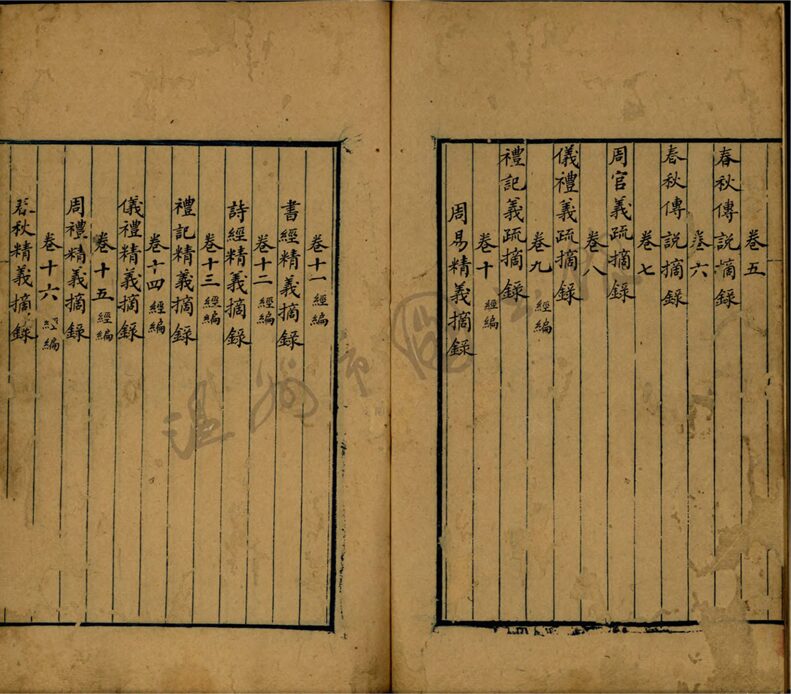 卷五
春秋傳說摘錄
卷六
春秋傳說摘錄
卷七
周官義疏摘錄
卷八
儀禮義疏摘錄
卷九 經編
禮記義疏摘錄
卷十 經編
周易精義摘錄
卷十一 經編
書經精義摘錄
卷十二 經編
詩經精義摘錄
卷十三 經編
禮記精義摘錄
卷十四 經編
儀禮精義摘錄
卷十五 經編
周禮精義摘錄
卷十六 經編
春秋精義摘錄
溫州市圖